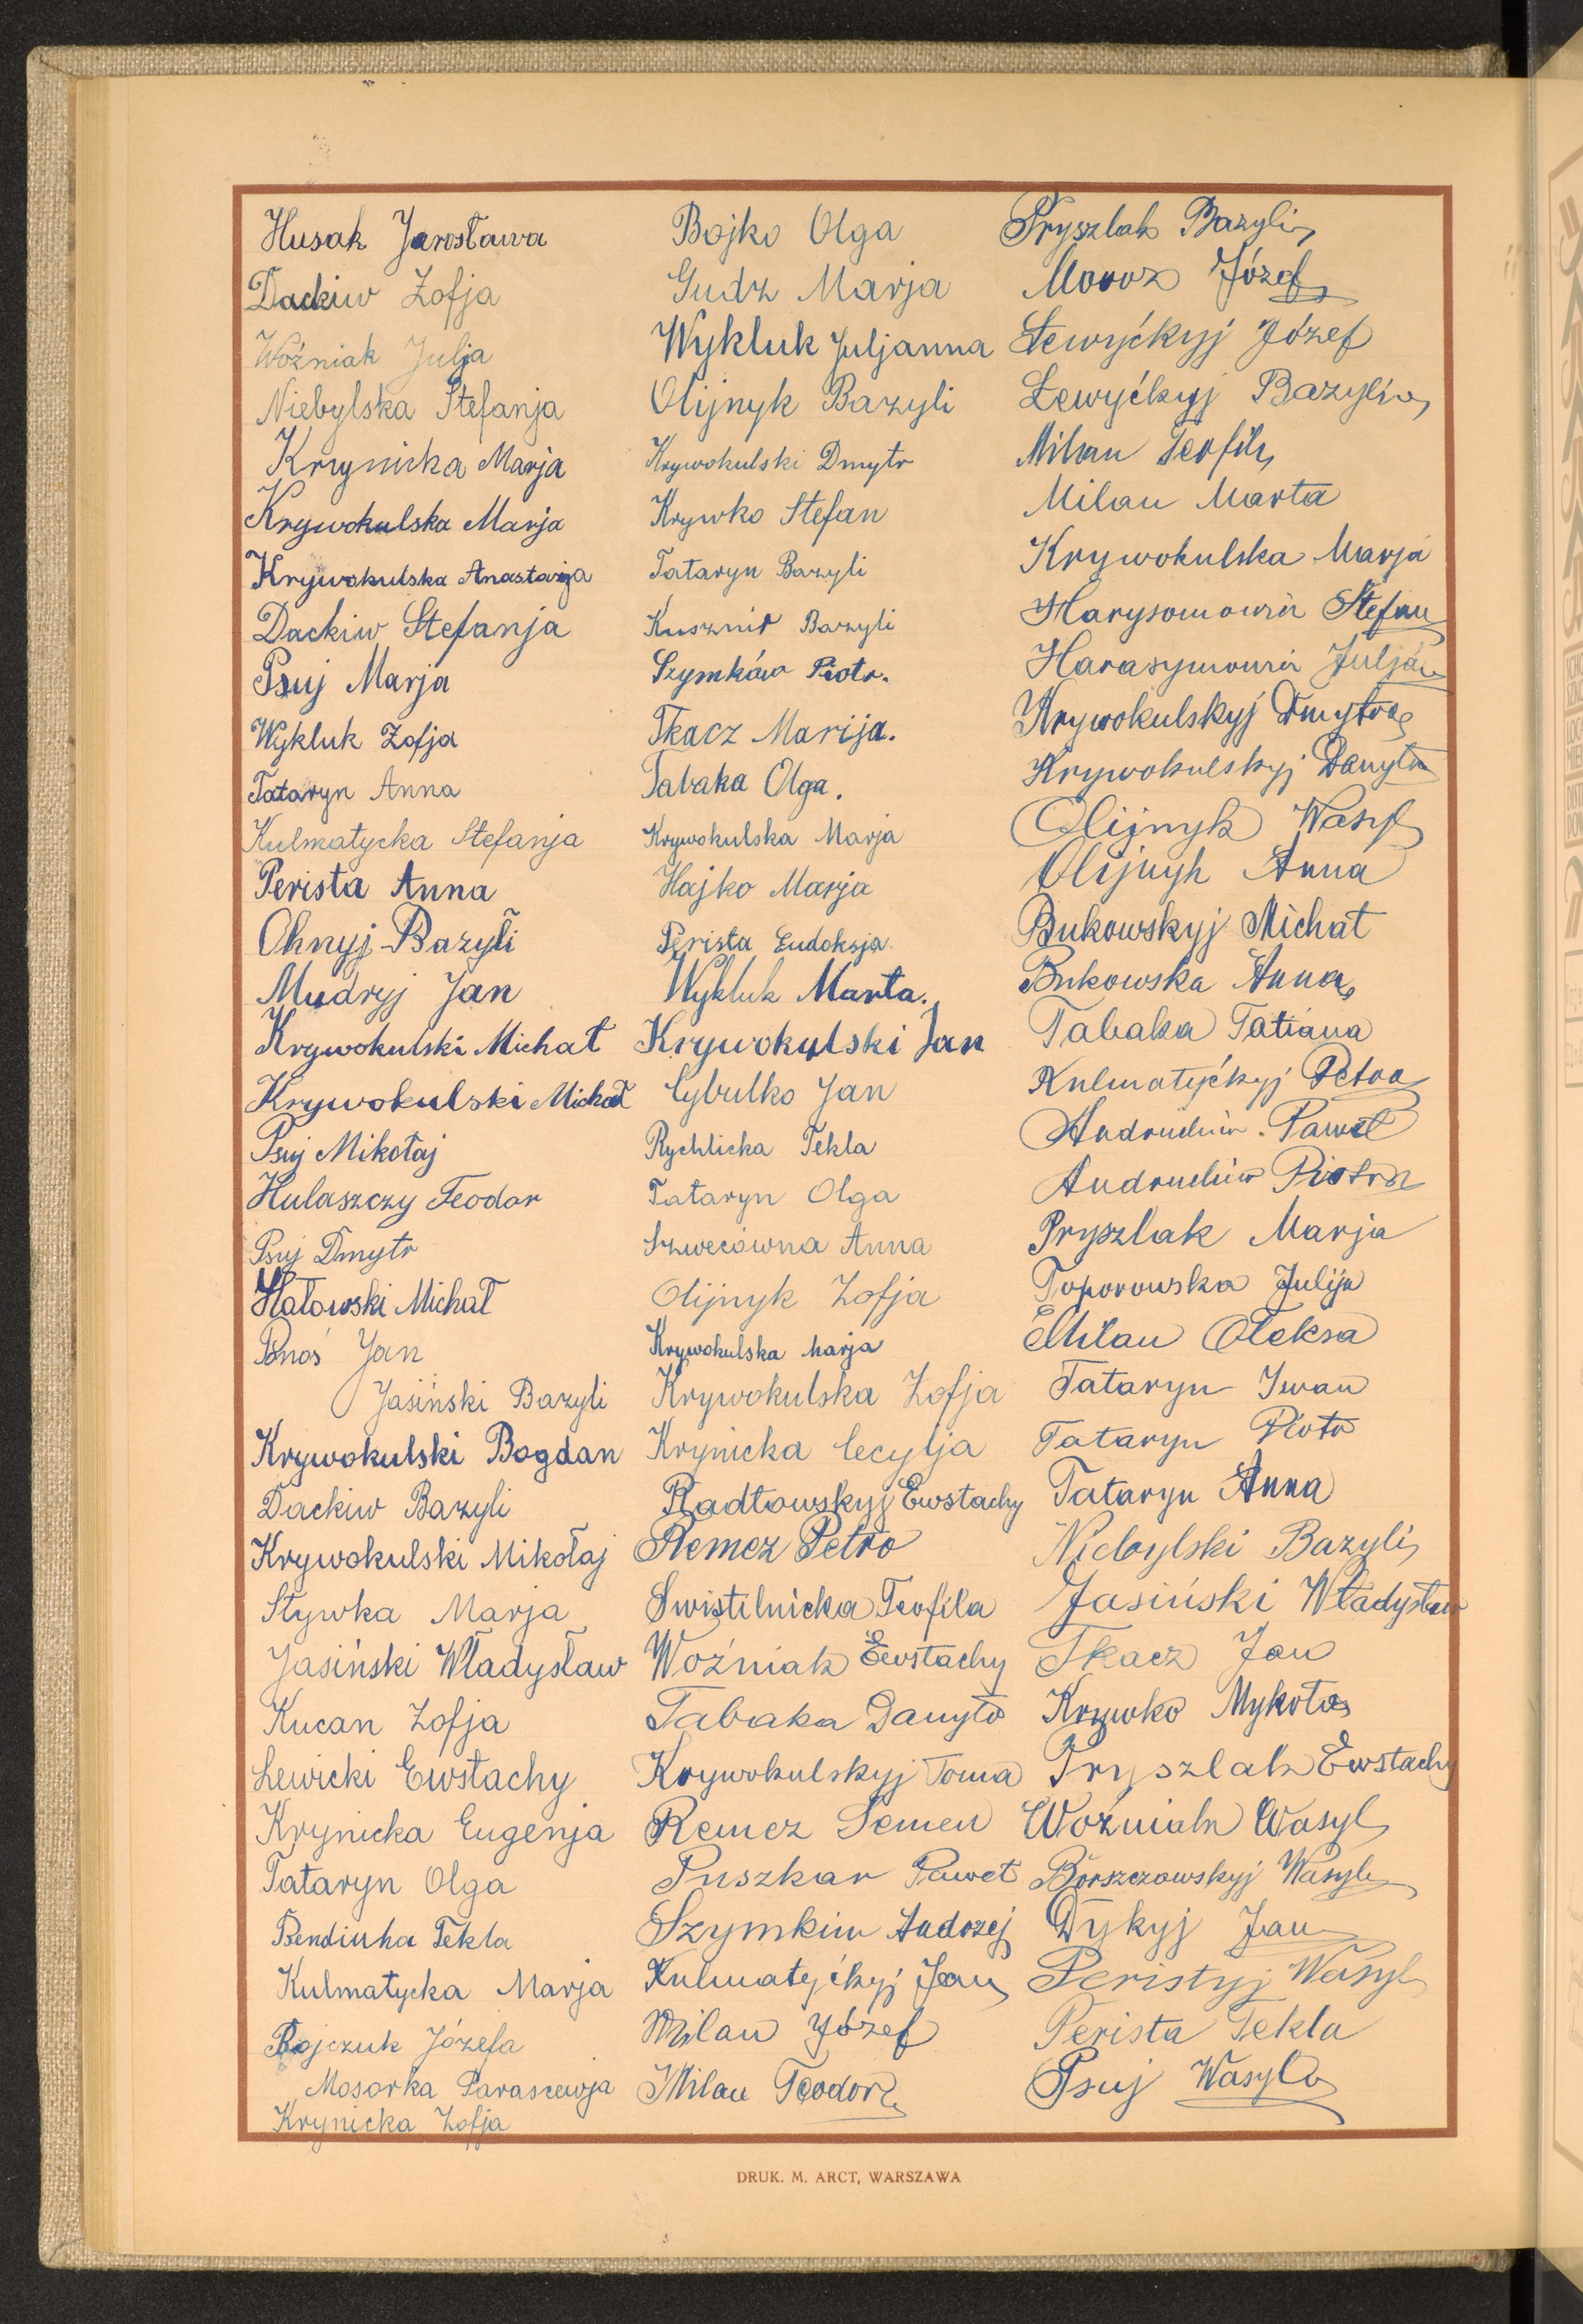 Husak Jarosława
Dackiw Zofja
Woźniak Julja
Niebylska Stefanja
Krynicka Marja
Krywokulska Marja
Krywokulska Anastazja
Dackiw Stefanja
Psuj Marja
Wykluk Zofja
Tataryn Anna
Kulmatycka Stefanja
Perista Anna
Ohnyj Bazyli
Mudryj Jan
Krywokulski Michał
Krywokulski Michał
Psuj Mikołaj
Hulaszczy Teodor
Psuj Dmytr
Hałowski Michał
Ponoś Jan
Jasiński Bazyli
Krywokulski Bogdan
Dackiw Bazyli
Krywokulski Mikołaj
Stywka Marja
Jasiński Władysław
Kucan Zofja
Lewicki Ewstachy
Krynicka Eugenja
Tataryn Olga
Bendiuha Tekla
Kulmatycka Marja
Rojczuk Józefa
Mosorka Parascewja
Krynicka Zofja
Bojko Olga
Gudz Marja
Wykluk Juljanna
Olijnyk Bazyli
Krywokulski Dmytr
Krywko Stefan
Tataryn Bazyli
Kusznir Bazyli
Szymków Piotr.
Tkacz Marija.
Tabaka Olga.
Krywokulska Marja
Hajko Marja
Perista Eudoksja
Wykluk Marta.
Krywokulski Jan
Cybulko Jan
Rychlicka Tekla
Tataryn Olga
Szwecówna Anna
Olijnyk Zofja
Krywokulska Marja
Krywokulska Zofja
Krynicka Cecylja
Radłowskyj Ewstachy
Remez Petro
Swistilnicka Teofila
Woźniak Ewstachy
Tabaka Danyło
Krywokulskyj Toma
Remez Semen
Puszkar Paweł
Szymkiw Andrzej
Kulmatyćkyj Jan
Milan Józef
Milan Teodor
Pryszlak Bazyli
Moroz Józef
Lewyćkyj Józef
Lewyćkyj Bazyli
Milan Teofil
Milan Marta
Krywokulska Marja
Stefan
Harasymowicz Juljan
Krywokulskyj Dmytro
Krywokulskyj Danyło
Olijnyk Wasyl
Olijnyk Anna
Bukowskyj Michał
Bukowska Anna
Tabaka Tatiana
Kulmatyćkyj Petro
Andruchiw Paweł
Andruchiw Piotr
Pryszlak Marja
Toporowska Julija
Milan Ołeksa
Tataryn Iwan
Tataryn Piotr
Tataryn Anna
Niebylski Bazyli
Jasiński Władysław
Tkacz Jan
Krywko Mykoła
Pryszlak Ewstachy
Woźniak Wasyl
Borszczowskyj Wasyl
Dykyj Jan
Peristyj Wasyl
Perista Tekla
Psuj Wasyl
DRUK. M. ARCT, WARSZAWA